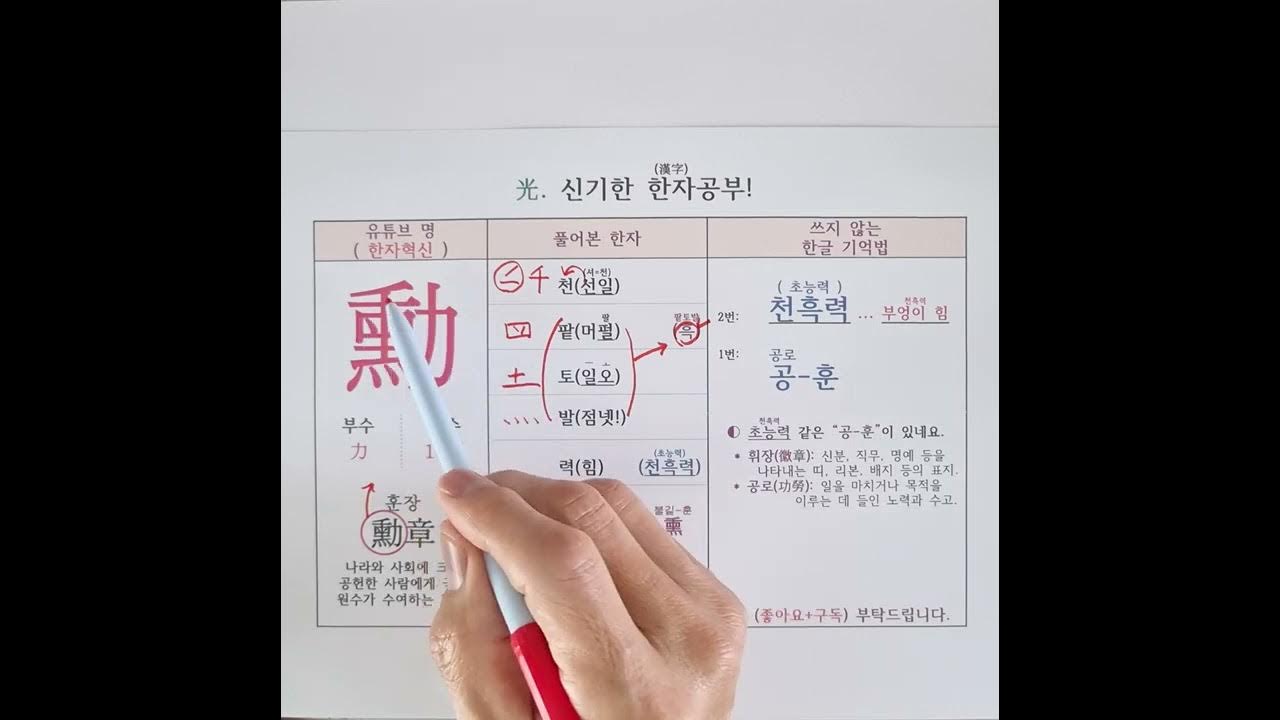 (漢字)
光. 신기한 한자공부!
유튜브 명
( 한자혁신 )
풀어본 한자
쓰지 않는
한글 기억법
勳
부수
力 1
훈장
勳章
나라와 사회에
공헌한 사람에게
원수가 수여하는
千 (셔=천)
천(선일)
팔
팥(머펄)
팥토발
흑
土 一 ㅗ
토(일오)
발(점넷!)
(초능력)
력(힘) (천흑력)
불길-훈
熏
( 초능력 )
천흑력
2번: 천흑력 ... 부엉이 힘
공로
1번: 공-훈
천흑력
◐ 초능력 같은 “공-훈”이 있네요.
* 휘장(徽章): 신분, 직무, 명예 등을
나타내는 띠, 리본, 배지 등의 표지.
* 공로(功勞): 일을 마치거나 목적을
이루는 데 들인 노력과 수고.
(좋아요+구독) 부탁드립니다.